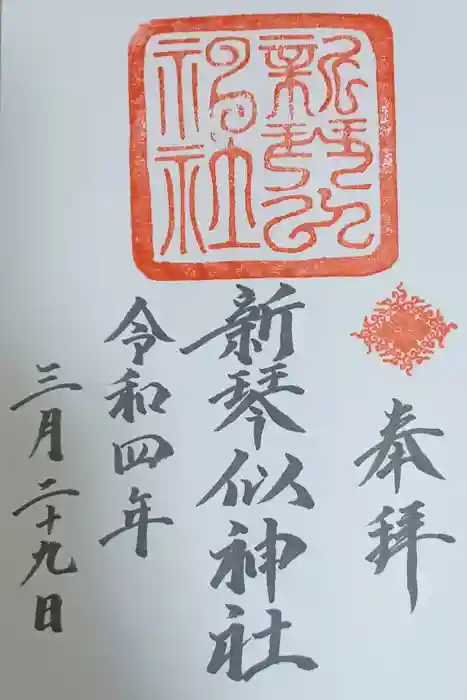 奉拝
新琴似神社
令和四年
三月二十九日
新琴似
神社